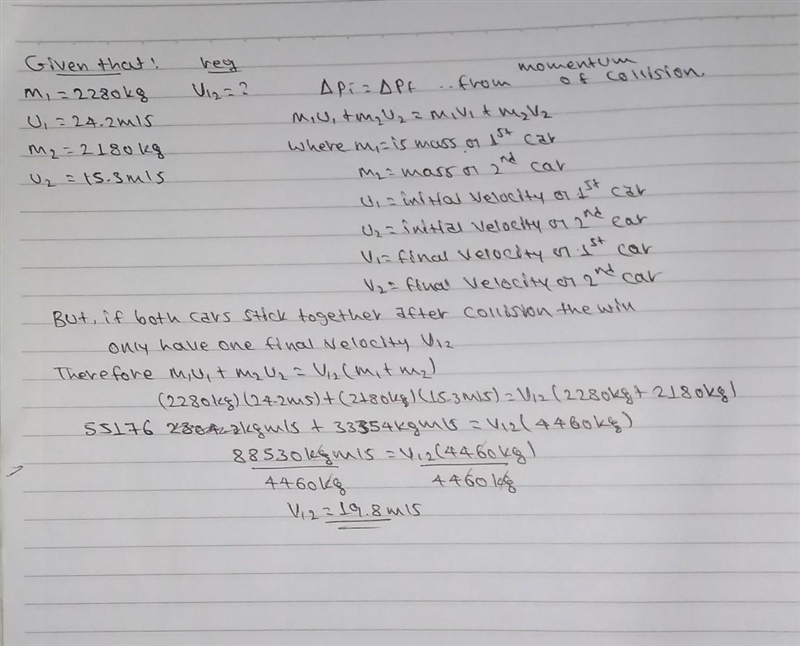 Given that: req
m₁ = 2280kg V₁₂ = ? ΔPi = ΔPf .. from momentum of collision
U₁ = 24.2m/s m₁U₁ + m₂U₂ = m₁V₁ + m₂V₂
m₂ = 2180kg where m₁ = is mass of 1st car
U₂ = 15.3m/s m₂ = mass of 2nd car
U₁ = initial velocity of 1st car
U₂ = initial velocity of 2nd car
V₁ = final velocity of 1st car
V₂ = final velocity of 2nd car
But, if both cars stick together after collision the will
only have one final velocity V₁₂
Therefore m₁U₁ + m₂U₂ = V₁₂(m₁ + m₂)
(2280kg)(24.2m/s) + (2180kg)(15.3m/s) = V₁₂(2280kg + 2180kg)
55176 kgm/s + 33354kgm/s = V₁₂(4460kg)
88530kgm/s = V₁₂(4460kg)
4460kg 4460kg
V₁₂ = 19.8m/s